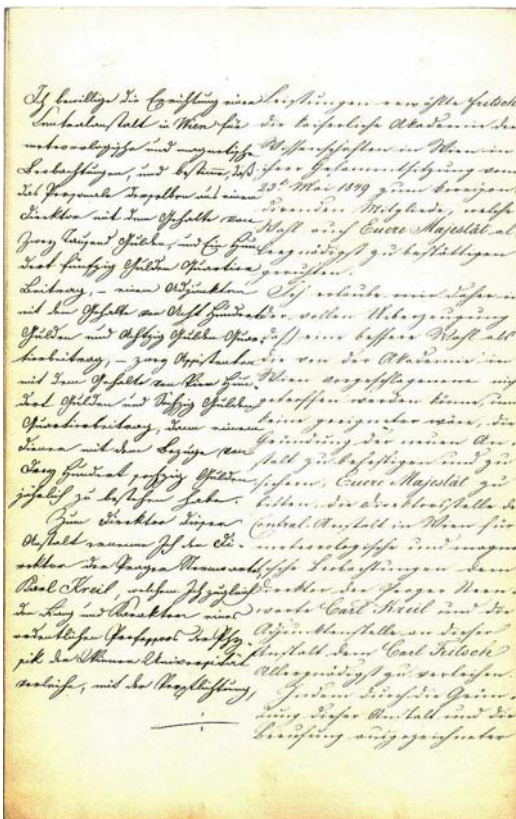 Ich bewillige die Errichtung einer
Centralanstalt in Wien für
meteorologische und magnetische
Beobachtungen, und bestimme, daß
das Personale derselben aus einem
Direktor mit dem Gehalte von
Zwey Tausend Gulden, und Ein Hun
dert fünfzig Gulden Quartier
Beitrag, – einem Adjunkten
mit dem Gehalte von Acht Hundert
Gulden und Achtzig Gulden Quar-
tierbeitrag, – zwey Assistenten
mit dem Gehalte von Vier Hun-
dert Gulden und Sechzig Gulden
Quartierbeitrag, dann einem
Diener mit dem Bezuge von
Drey Hundert sechzig Gulden
jährlich zu bestehen habe.
Zum Direktor dieser
Anstalt ernenne Ich den Di-
rektor der Prager Sternwarte
Karl Kreil, welchem Ich zugleich
den Rang und Karakter eines
ordentlichen Professors der Phy-
sik der Wiener Universität
verleihe, mit der Verpflichtung,
Leistungen erwählte Fritsch
die kaiserliche Akademie der
Wissenschaften in Wien in
ihrer Gesammtsitzung vom
23t Mai 1849 zum korrespon
direnden Mitgliede, welche
Wahl auch Euere Majestät al
lergnädigst zu bestättigen
geruhten.
Ich erlaube mir daher in
der vollen Uiberzeugung
daß eine bessere Wahl als
die von der Akademie in
Wien vorgeschlagene nicht
getroffen werden könne, und
keine geeigneter wäre, die
Gründung der neuen An-
stalt zu befestigen und zu
sichern, Euere Majestät zu
bitten, die Direktorsstelle der
Central-Anstalt in Wien für
meteorologische und magne
tische Beobachtungen dem
Direktor der Prager Stern-
warte Carl Kreil und die
Adjunktenstelle an dieser
Anstalt dem Carl Fritsch
Allergnädigst zu verleihen.
Indem durch die Grün-
dung dieser Anstalt und die
Berufung ausgezeichneter